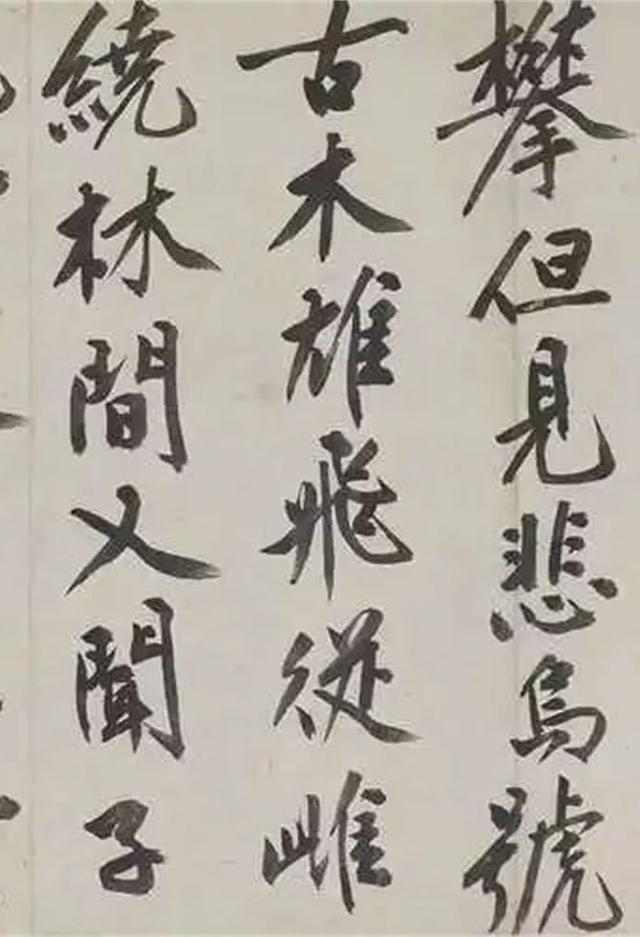 攀但見悲烏號
古木雄飛從雌
繞林間又聞子